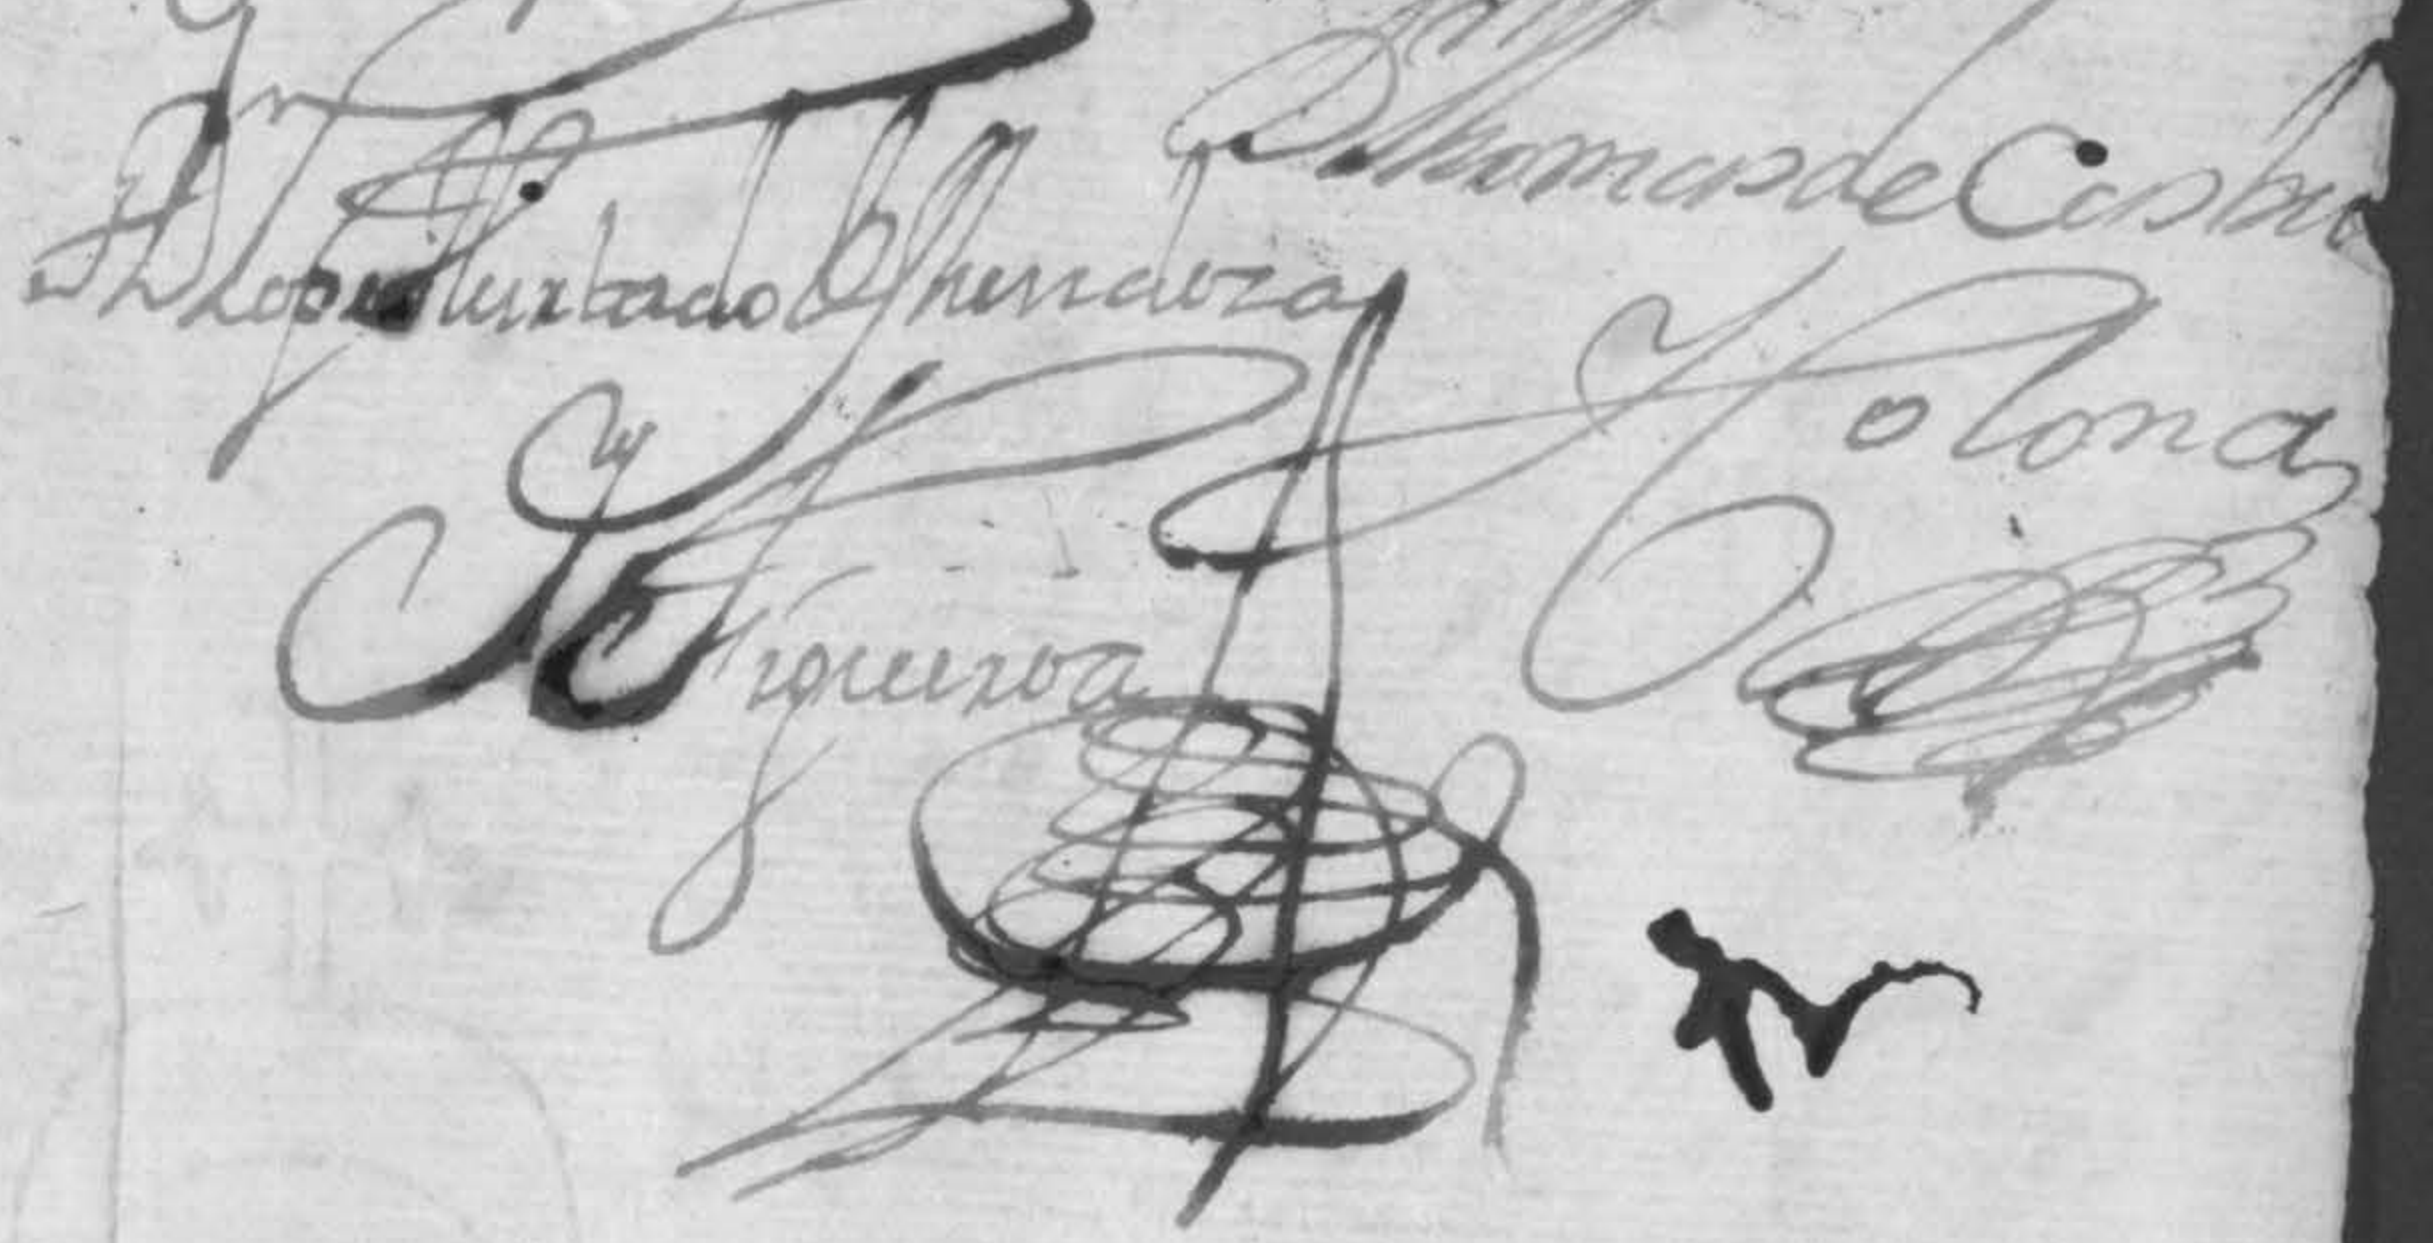 Dn Lope Hurtado de Mendoza
y Figueroa
Dn Thomas de Castro
y Colona